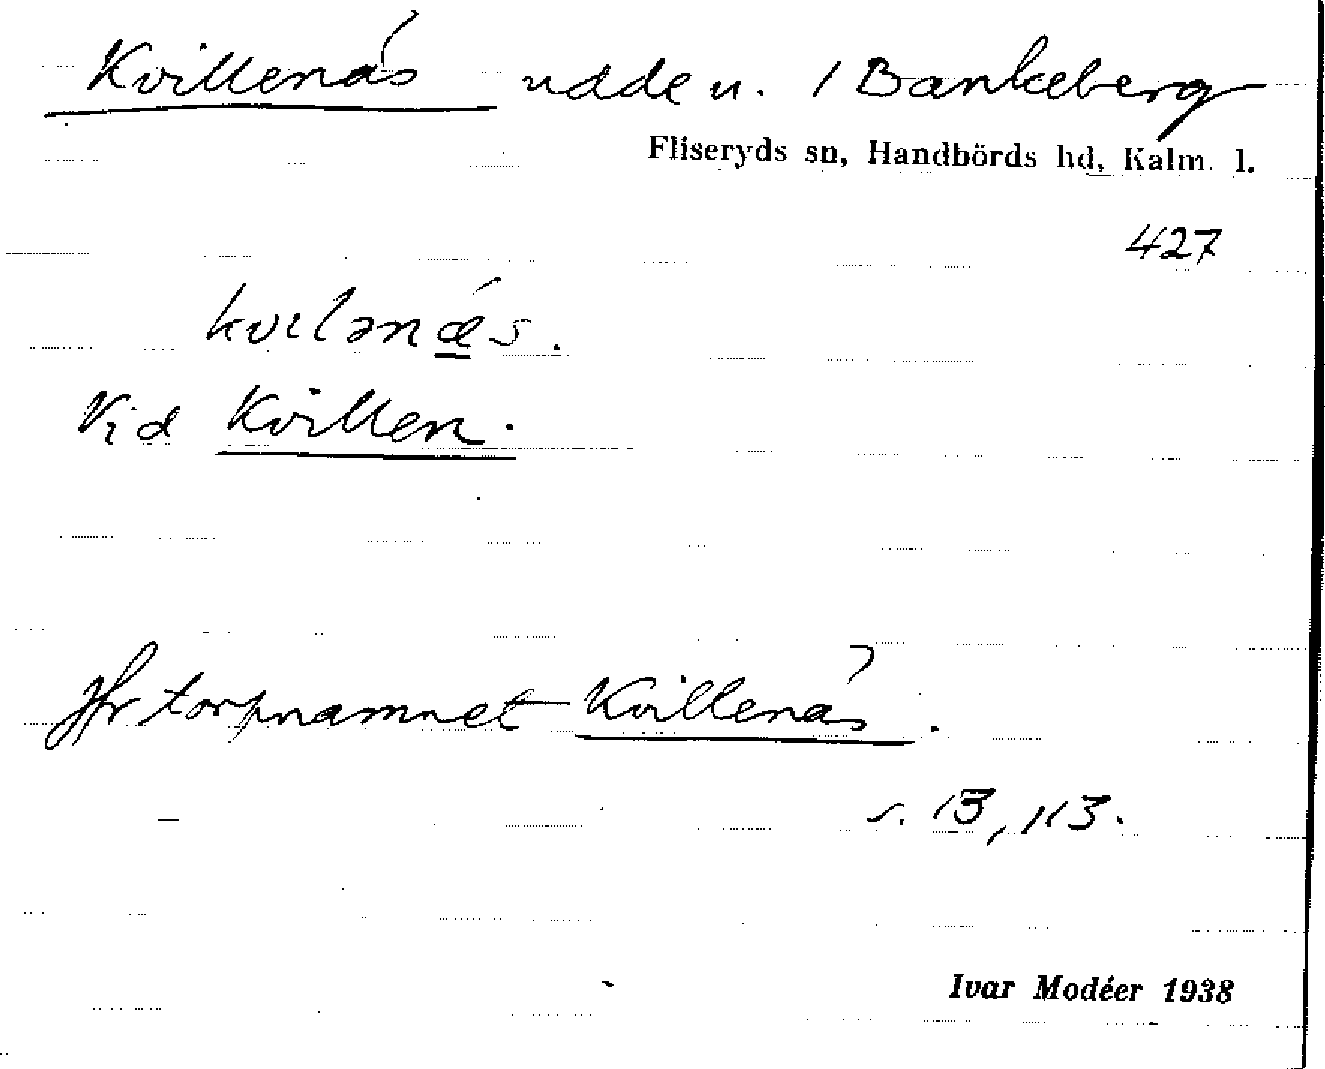 Kvillenäs udde u. / Bankeberg
Fliseryds sn, Handbörds hd, Kalm. l.
427
kvilənæ´s.
Vid Kvillen.
Jfr torpnamnet Kvillenäs.
s. 13, 113.
Ivar Modéer 1938